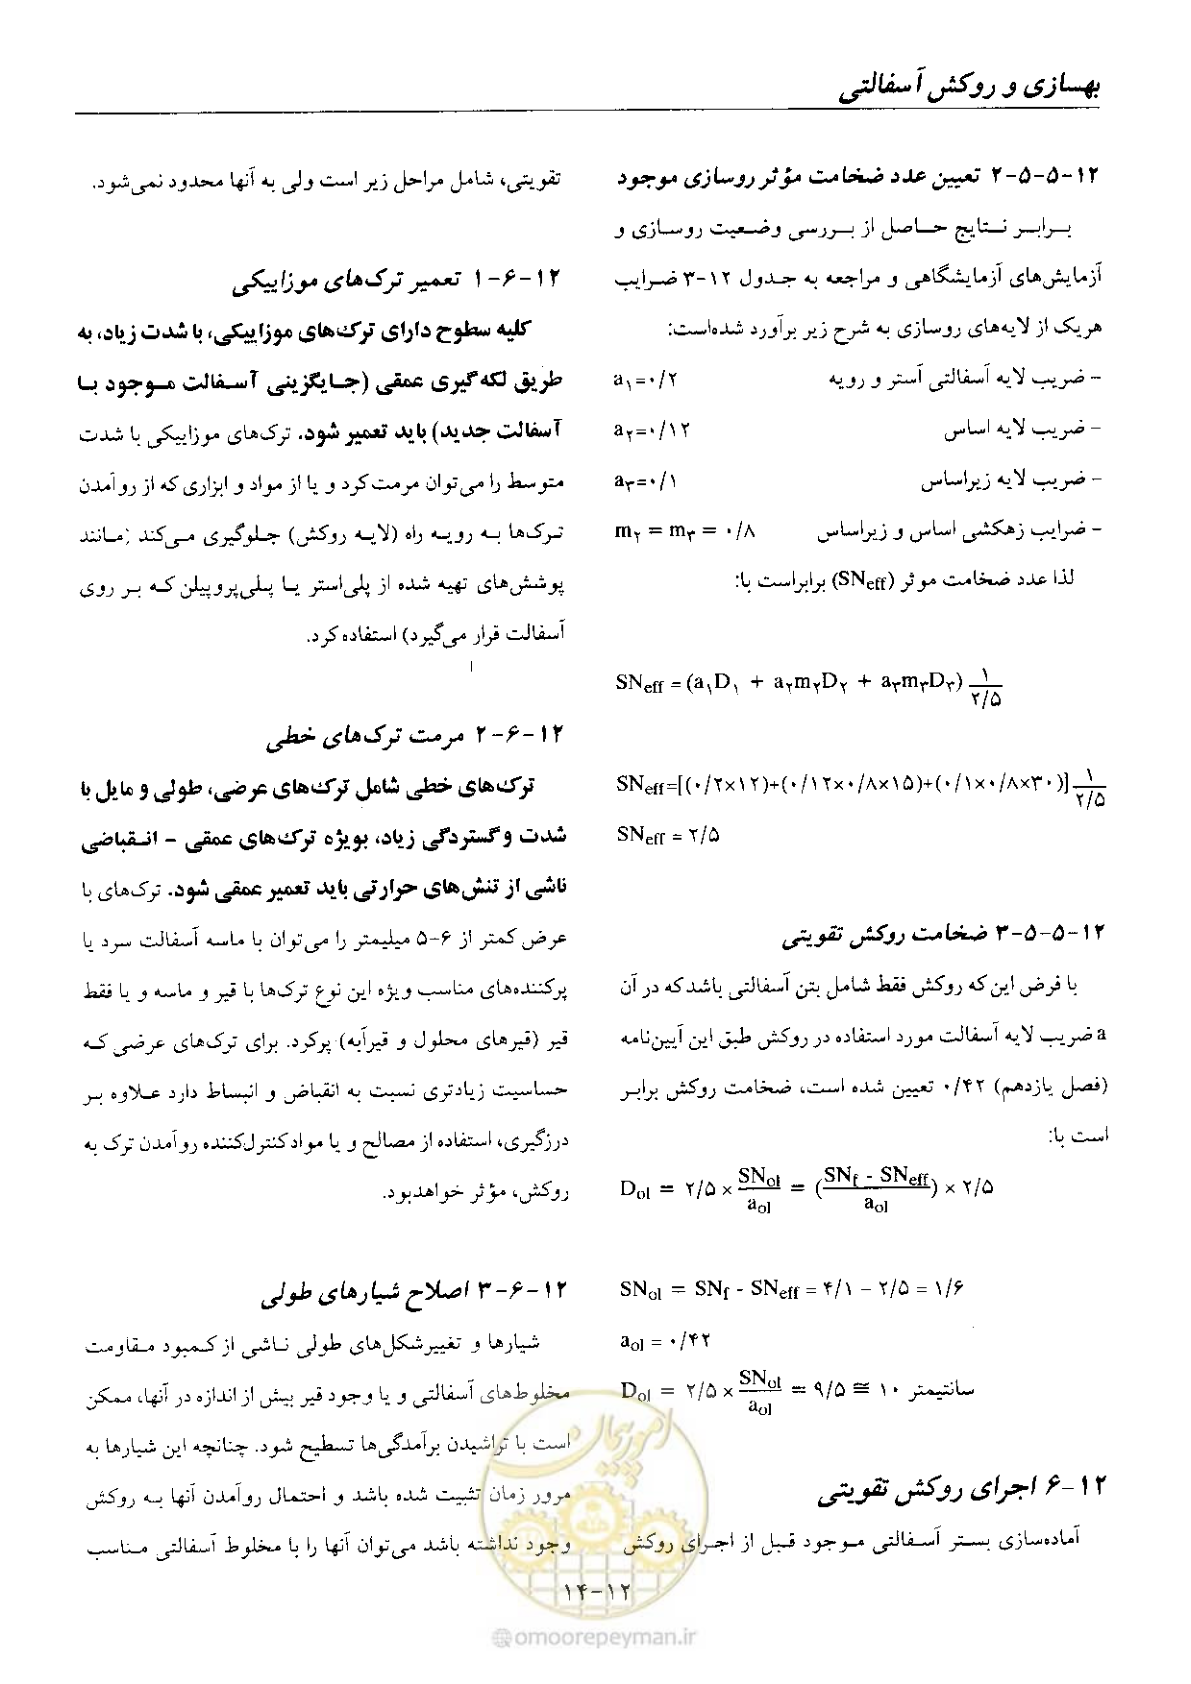 بهسازی و روکش آسفالتی
۱۲-۵-۵-۲ تعیین عدد ضخامت مؤثر روسازی موجود
برابر نتایج حاصل از بررسی وضعیت روسازی و
آزمایش‌های آزمایشگاهی و مراجعه به جدول ۱۲-۳ ضرایب
هریک از لایه‌های روسازی به شرح زیر برآورد شده‌است:
- ضریب لایه آسفالتی آستر و رویه a۱=۰/۲
- ضریب لایه اساس a۲=۰/۱۲
- ضریب لایه زیراساس a۳=۰/۱
- ضرایب زهکشی اساس و زیراساس m۲ = m۳ = ۰/۸
لذا عدد ضخامت موثر (SNeff) برابراست با:
SNeff = (a۱D۱ + a۲m۲D۲ + a۳m۳D۳) ۱/۲/۵
SNeff=[(۰/۲×۱۲)+(۰/۱۲×۰/۸×۱۵)+(۰/۱×۰/۸×۳۰)] ۱/۲/۵
SNeff = ۲/۵
۱۲-۵-۵-۳ ضخامت روکش تقویتی
با فرض این که روکش فقط شامل بتن آسفالتی باشد که در آن
a ضریب لایه آسفالت مورد استفاده در روکش طبق این آیین‌نامه
(فصل یازدهم) ۰/۴۲ تعیین شده است، ضخامت روکش برابر
است با:
Dol = ۲/۵ × SNol/aol = (SNf - SNeff/aol) × ۲/۵
SNol = SNf - SNeff = ۴/۱ − ۲/۵ = ۱/۶
aol = ۰/۴۲
Dol = ۲/۵ × SNol/aol = ۹/۵ ≅ ۱۰ سانتیمتر
۱۲-۶ اجرای روکش تقویتی
آماده‌سازی بستر آسفالتی موجود قبل از اجرای روکش
تقویتی، شامل مراحل زیر است ولی به آنها محدود نمی‌شود.
۱۲-۶-۱ تعمیر ترک‌های موزاییکی
کلیه سطوح دارای ترک‌های موزاییکی، با شدت زیاد، به
طریق لکه‌گیری عمقی (جایگزینی آسفالت موجود با
آسفالت جدید) باید تعمیر شود. ترک‌های موزاییکی با شدت
متوسط را می‌توان مرمت کرد و یا از مواد و ابزاری که از روآمدن
ترک‌ها به رویه راه (لایه روکش) جلوگیری می‌کند ;مانند
پوشش‌های تهیه شده از پلی‌استر یا پلی‌پروپیلن که بر روی
آسفالت قرار می‌گیرد) استفاده کرد.
۱۲-۶-۲ مرمت ترک‌های خطی
ترک‌های خطی شامل ترک‌های عرضی، طولی و مایل با
شدت و گستردگی زیاد، بویژه ترک‌های عمقی - انقباضی
ناشی از تنش‌های حرارتی باید تعمیر عمقی شود. ترک‌های با
عرض کمتر از ۶-۵ میلیمتر را می‌توان با ماسه آسفالت سرد یا
پرکننده‌های مناسب ویژه این نوع ترک‌ها با قیر و ماسه و یا فقط
قیر (قیرهای محلول و قیرآبه) پرکرد. برای ترک‌های عرضی که
حساسیت زیادتری نسبت به انقباض و انبساط دارد علاوه بر
درزگیری، استفاده از مصالح و یا مواد کنترل‌کننده روآمدن ترک به
روکش، مؤثر خواهدبود.
۱۲-۶-۳ اصلاح شیارهای طولی
شیارها و تغییرشکل‌های طولی ناشی از کمبود مقاومت
مخلوط‌های آسفالتی و یا وجود قیر بیش از اندازه در آنها، ممکن
است با تراشیدن برآمدگی‌ها تسطیح شود. چنانچه این شیارها به
مرور زمان تثبیت شده باشد و احتمال روآمدن آنها به روکش
وجود نداشته باشد می‌توان آنها را با مخلوط آسفالتی مناسب
۱۴-۱۲
امور پیمان
@omoorepeyman.ir